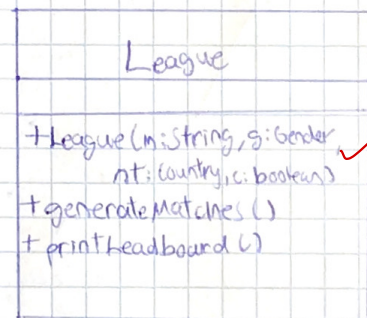 League
+League(n:String,g:Gender,
nt:Country,c:boolean)
+generateMatches()
+printLeadboard()